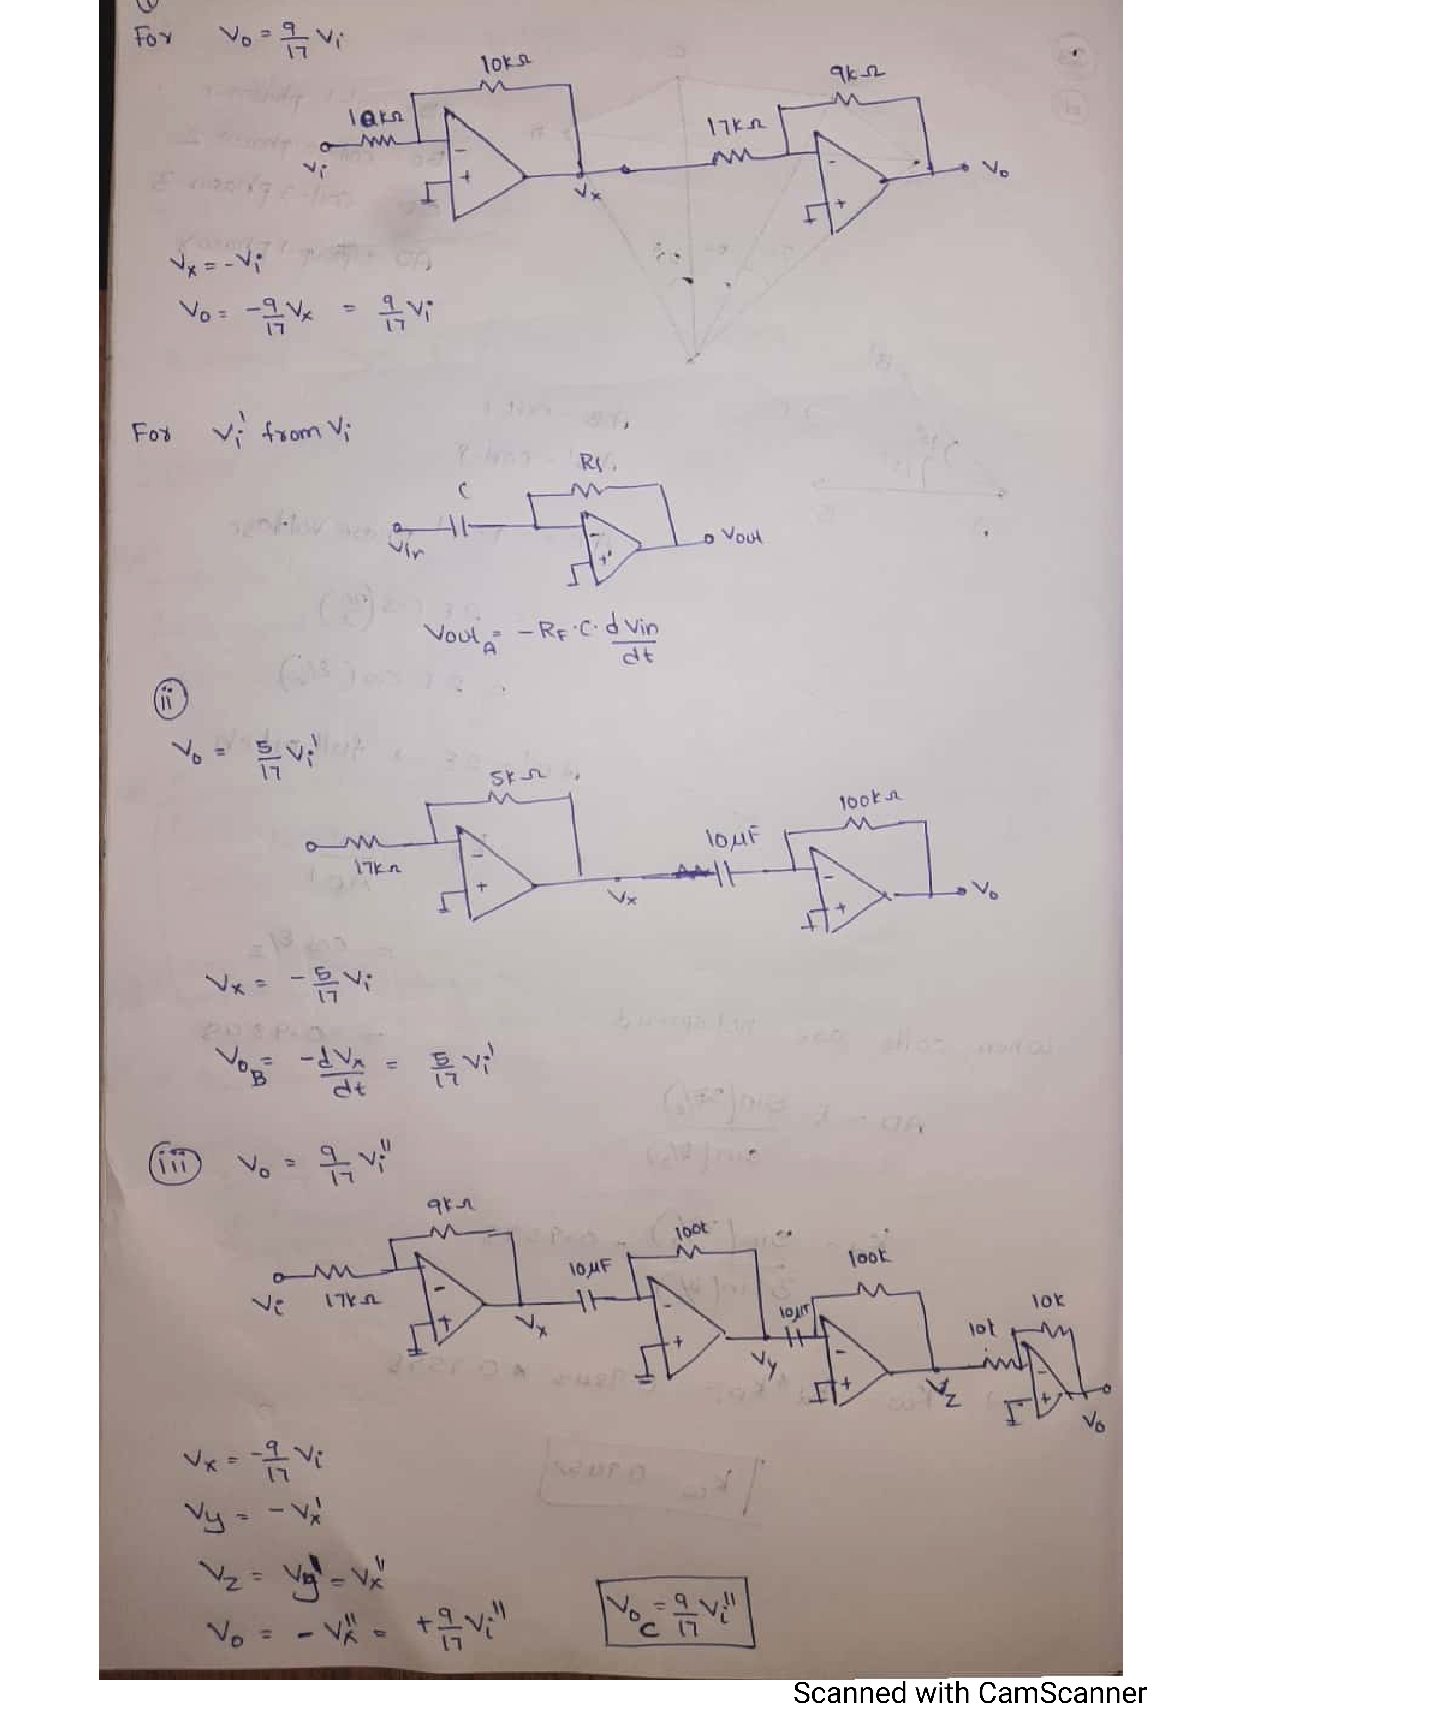 For Vo = 9/17 Vi
10kΩ
10kΩ
9kΩ
17kΩ
Vi
-
+
Vx
-
+
Vo
Vx = -Vi
Vo = -9/17 Vx = 9/17 Vi
For Vi' from Vi
Rf
C
Vin
-
+
Vout
VoutA = -RF·C· dVin/dt
ii
Vo = 5/17 Vi'
5kΩ
100kΩ
10μF
17kΩ
-
+
Vx
-
+
Vo
Vx = -5/17 Vi
VoB = -dVx/dt = 5/17 Vi'
iii Vo = 9/17 Vi''
9kΩ
100k
100k
10μF
10k
Vi
17kΩ
-
+
Vx
-
+
Vy
-
+
Vz
10k
-
+
Vo
Vx = -9/17 Vi
Vy = -Vx'
Vz = = Vx''
Vo = -Vx'' = +9/17 Vi''
VoC = 9/17 Vi''
Scanned with CamScanner